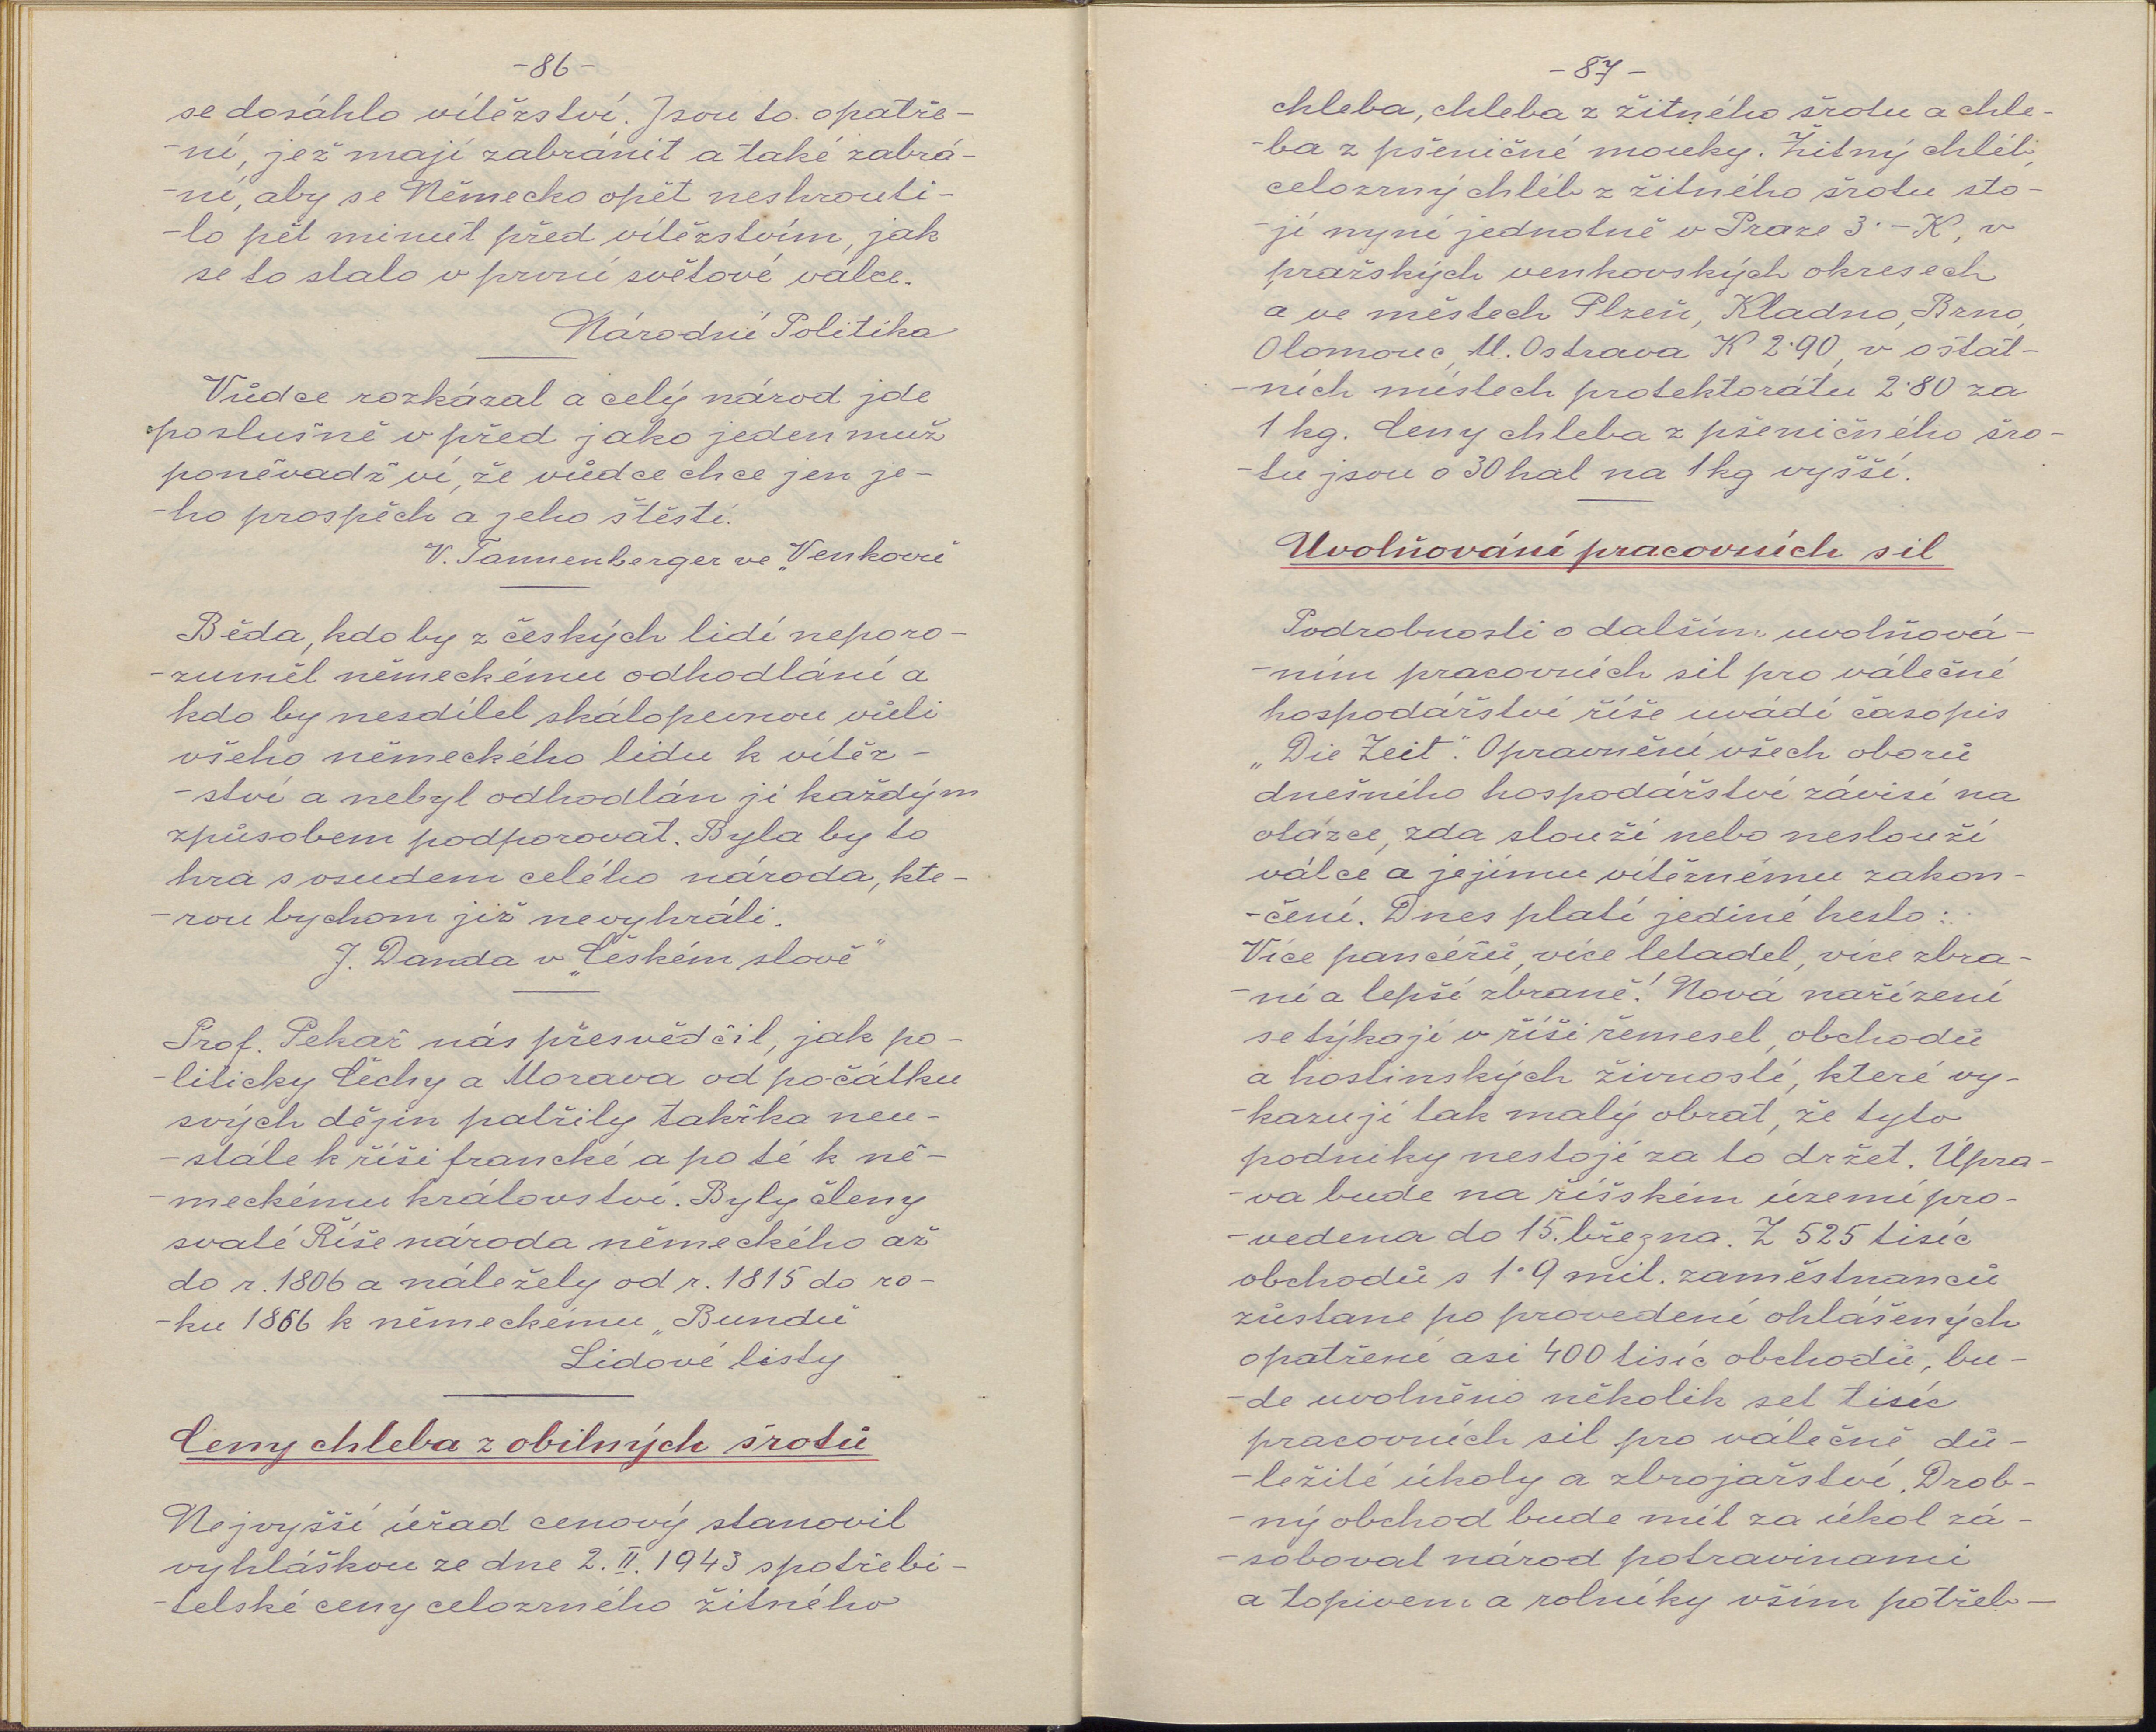 -86-
se dosáhlo vítězství. Jsou to opatře-
-ní, jež mají zabránit a také zabrá-
-ní, aby se Německo opět neshrouti-
-lo pět minut před vítězstvím, jak
se to stalo v první světové válce.
Národní Politika
Vůdce rozkázal a celý národ jde
poslušně v před jako jeden muž
poněvadž ví, že vůdce chce jen je-
-ho prospěch a jeho štěstí.
V. Tannenberger ve „Venkově
Běda, kdo by z českých lidí neporo-
-zuměl německému odhodlání a
kdo by nesdílel skálopevnou vůli
všeho německého lidu k vítěz-
-ství a nebyl odhodlán ji každým
způsobem podporovat. Byla by to
hra s osudem celého národa, kte-
-rou bychom již nevyhráli.
J. Danda v „Českém slově"
Prof. Pekař nás přesvědčil, jak po-
-liticky Čechy a Morava od počátku
svých dějin patřily takřka neu-
-stále k říši francké a po té k ně-
-meckému království. Byly členy
svaté Říše národa německého až
do r. 1806 a náležely od r. 1815 do ro-
-ku 1866 k německému „Bundu
Lidové listy
Ceny chleba z obilných šrotů
Nejvyšší úřad cenový stanovil
vyhláškou ze dne 2. II. 1943 spotřebi-
-telské ceny celozrného žitného
-87-
chleba, chleba z žitného šrotu a chle-
-ba z pšeničné mouky. Žitný chléb,
celozrný chléb z žitného šrotu sto-
-jí nyní jednotně v Praze 3·-K, v
pražských venkovských okresech
a ve městech Plzeň, Kladno, Brno,
Olomouc, M. Ostrava K 2·90, v ostat-
-ních místech protektorátu 2·80 za
1 kg. Ceny chleba z pšeničného šro-
-tu jsou o 30 hal na 1 kg vyšší.
Uvolňování pracovních sil
Podrobnosti o dalším uvolňová-
-ním pracovních sil pro válečné
hospodářství říše uvádí časopis
„Die Zeit". Opravnění všech oborů
dnešního hospodářství závisí na
otázce, zda slouží nebo neslouží
válce a jejímu vítěznému zakon-
-čení. Dnes platí jediné heslo:
Více pancéřů, více letadel, více zbra-
-ní a lepší zbraně! Nová nařízení
se týkají v říši řemesel, obchodů
a hostinských živností, které vy-
-kazují tak malý obrat, že tyto
podniky nestojí za to držet. Úpra-
-va bude na říšském území pro-
-vedena do 15. března. Z 525 tisíc
obchodů s 1·9 mil. zaměstnanců
zůstane po provedení ohlášených
opatření asi 400 tisíc obchodů, bu-
-de uvolněno několik set tisíc
pracovních sil pro válečně dů-
-ležité úkoly a zbrojařství. Drob-
-ný obchod bude mít za úkol zá-
-soboval národ potravinami
a topivem a rolníky vším potřeb-